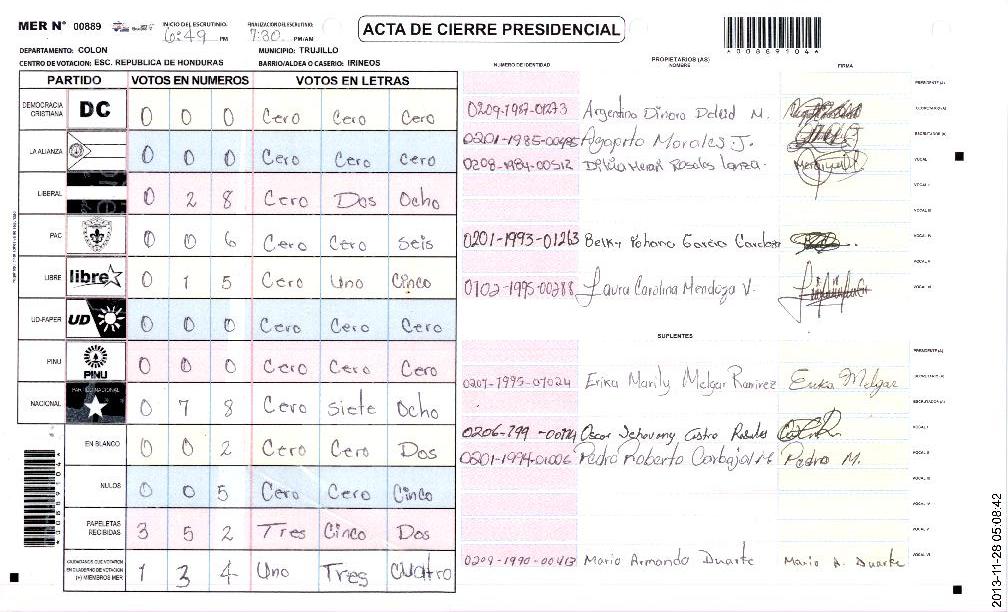 MER N° 00889 INICIO DEL ESCRUTINIO: 6:49 PM FINALIZACION DEL ESCRUTINIO: 7:30 PM/AM
ACTA DE CIERRE PRESIDENCIAL
*00889104*
DEPARTAMENTO: COLON MUNICIPIO: TRUJILLO
CENTRO DE VOTACION: ESC. REPUBLICA DE HONDURAS BARRIO/ALDEA O CASERIO: IRINEOS
PARTIDO VOTOS EN NUMEROS VOTOS EN LETRAS
DEMOCRACIA CRISTIANA DC 0 0 0 Cero Cero Cero
LA ALIANZA 0 0 0 Cero Cero Cero
LIBERAL 0 2 8 Cero Dos Ocho
PAC 0 0 6 Cero Cero Seis
LIBRE libre 0 1 5 Cero Uno Cinco
UD-FAPER UD 0 0 0 Cero Cero Cero
PINU PINU 0 0 0 Cero Cero Cero
NACIONAL PARTIDO NACIONAL 0 7 8 Cero Siete Ocho
EN BLANCO 0 0 2 Cero Cero Dos
NULOS 0 0 5 Cero Cero Cinco
PAPELETAS RECIBIDAS 3 5 2 Tres Cinco Dos
CIUDADANOS QUE VOTARON EN CUADERNO DE VOTACION (+) MIEMBROS MER 1 3 4 Uno Tres Cuatro
*00889104*
NUMERO DE IDENTIDAD PROPIETARIOS (AS) NOMBRE FIRMA
PRESIDENTE (A)
0209-1987-01273 Argentina Dinora M. SECRETARIO (A)
0201-1985-00495 Agapito Morales J. ESCRUTADOR (A)
0208-1984-00512 Rosales VOCAL
VOCAL I
VOCAL III
0201-1993-01263 Belky Yohana Garcia Cardoza VOCAL IV
VOCAL V
0102-1995-00288 Laura Carolina Mendoza V. VOCAL VI
SUPLENTES
PRESIDENTE (A)
0207-1995-01024 Erika Marily Melgar Ramirez Erika Melgar SECRETARIO (A)
ESCRUTADOR (A)
0206-799 Oscar Jehovany Castro Rosales VOCAL I
0201-1994-01006 Pedro Roberto Carbajal M. Pedro M. VOCAL II
VOCAL III
VOCAL IV
VOCAL V
0209-1990-00413 Mario Armando Duarte Mario A. Duarte VOCAL VI
2013-11-28 05:08:42